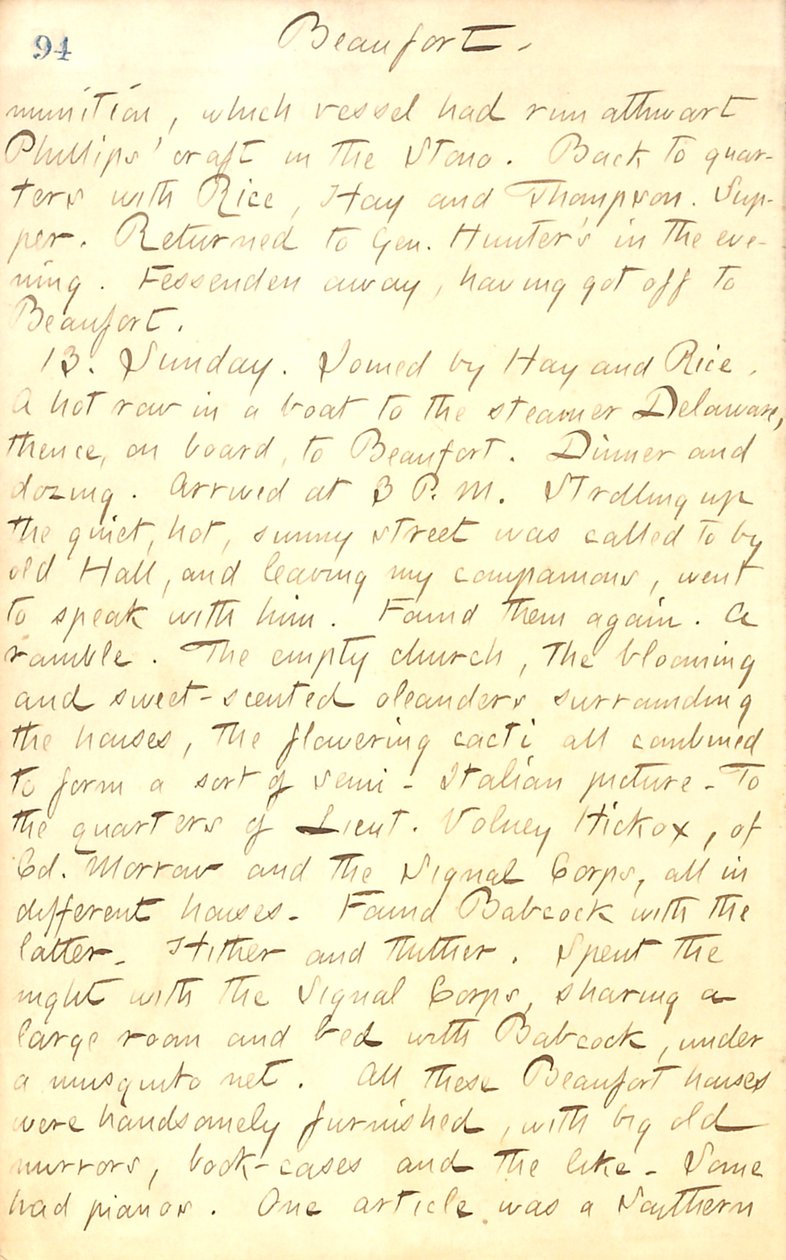 94
Beaufort.
munition, which vessel had run athwart
Phillips' craft in the Stono. Back to quar-
ters with Rice, Hay and Thompson. Sup-
per. Returned to Gen. Hunter's in the eve-
ning. Fessenden away, having got off to
Beaufort.
13. Sunday. Joined by Hay and Rice.
A hot row in a boat to the steamer Delaware,
thence, on board, to Beaufort. Dinner and
dozing. Arrived at 3 P.M. Strolling up
the quiet, hot, sunny street was called to by
old Hall, and leaving my companions, went
to speak with him. Found them again. A
ramble. The empty church, the blooming
and sweet-scented oleanders surrounding
the houses, the flowering cacti all combined
to form a sort of semi-Italian picture. To
the quarters of Lieut. Volney Hickox, of
Col. Morrow and the Signal Corps, all in
different houses. Found Babcock with the
latter. Hither and thither. Spent the
night with the Signal Corps, sharing a
large room and bed with Babcock, under
a musquito net. All these Beaufort houses
were handsomely furnished, with big old
mirrors, book-cases and the like. Some
had pianos. One article was a Southern